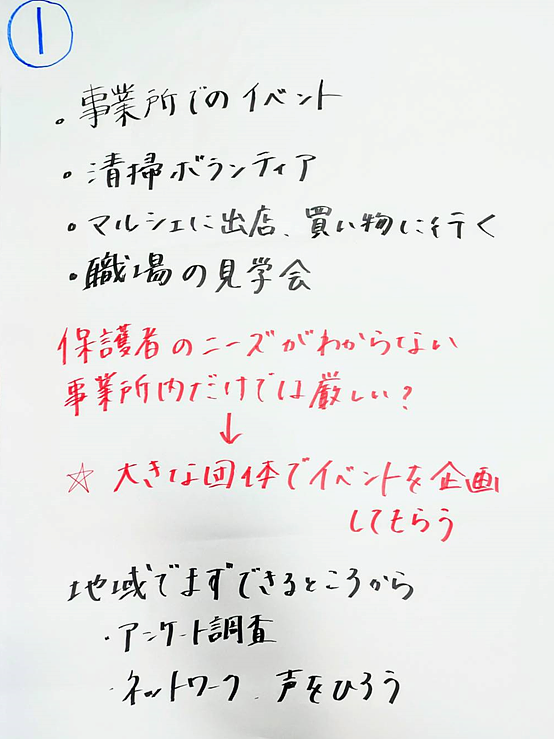 ①
。事業所でのイベント
。清掃ボランティア
。マルシェに出店、買い物に行く
。職場の見学会
保護者のニーズがわからない
事業所内だけでは厳しい？
↓
☆ 大きな団体でイベントを企画
してもらう
地域でまずできるところから
・アンケート調査
・ネットワーク、声をひろう